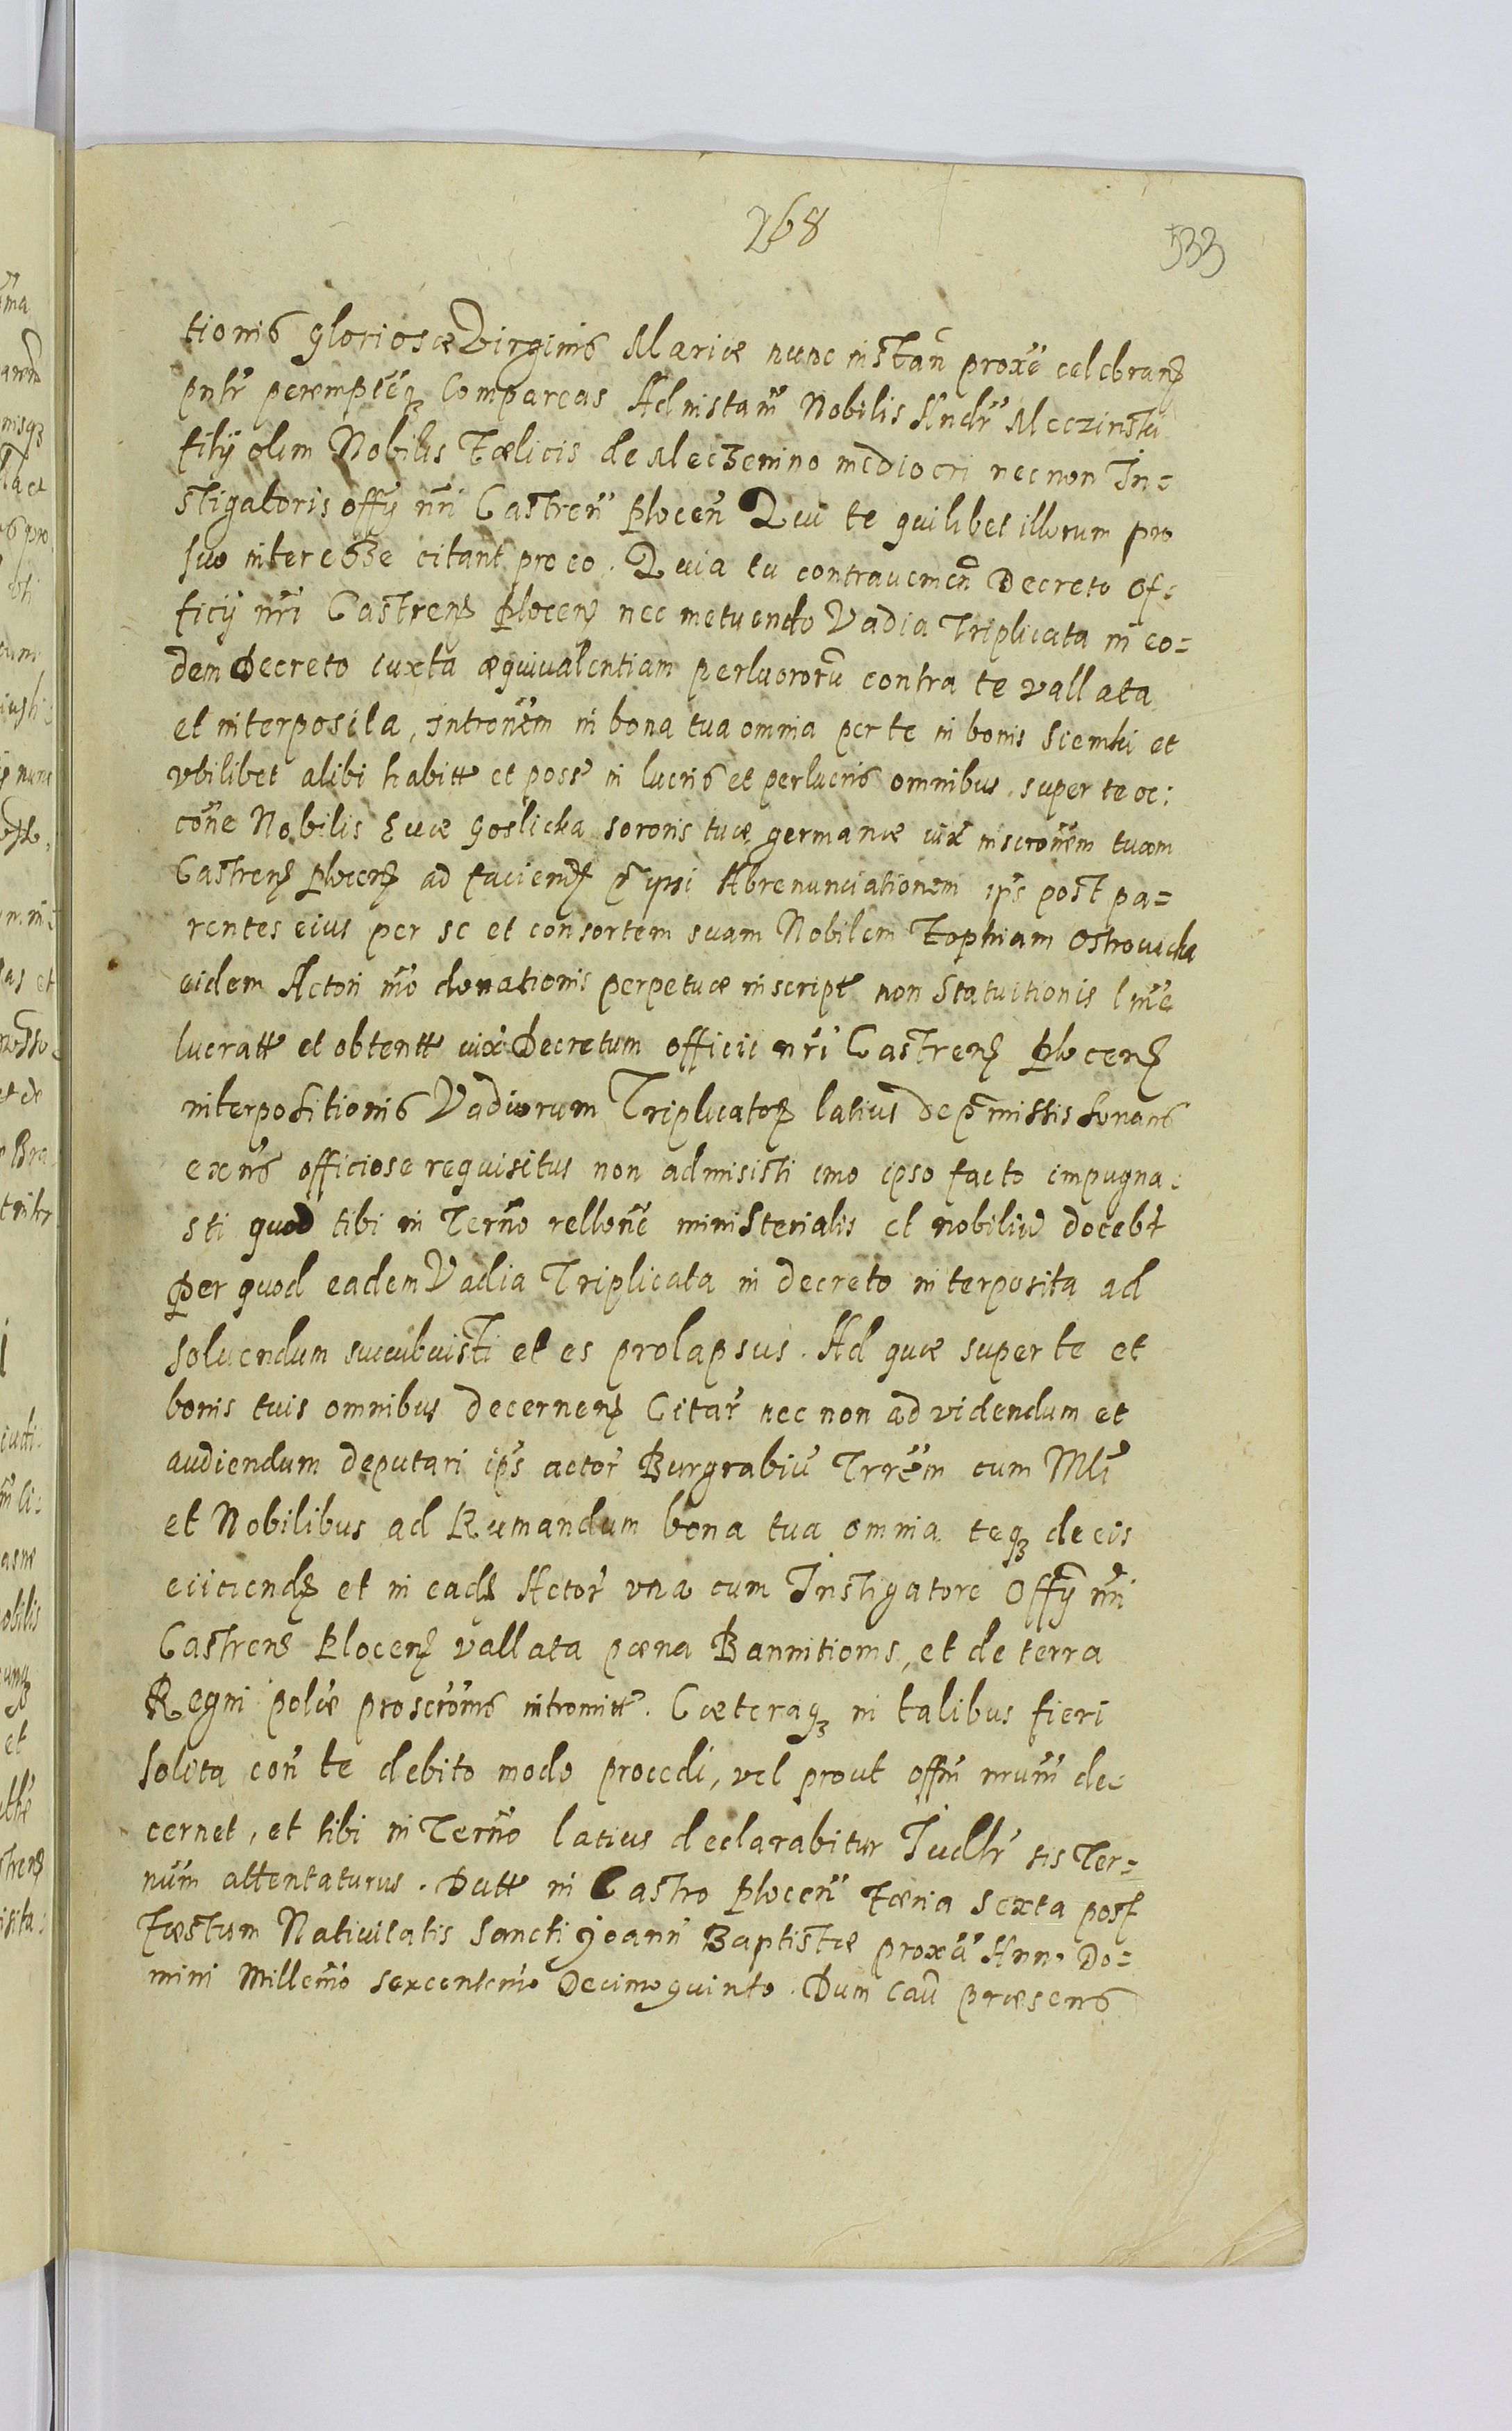 268
533
tionis gloriosæ Virginis Mariæ nunc instan̄ prox̄e celebranꝭ
pnłr perempt̄eqꝫ Compareas Ad instañ Nobilis Andr̄ Meczinski
filij olim Nobilis Fœlicis de Meczenino mediocri nec non In=
stigatoris offȳ nr̄i Castren̄ Plocen̄ Qui te quilibet illorum pro
suo interesse citant pro eo. Quia tu contravenien̄ Decreto Of=
ficij nr̄i Castrenꝭ Plocenꝭ nec metuendo Vadia Triplicata in eo=
dem decreto iuxta æquivalentiam perlucrorū contra te vallata
et interposita, intron̄em in bona tua omnia per te in bonis Siemki et
vbilibet alibi habitt et poss̄ in lucris et perlucris omnibus super te oc:
con̄e Nobilis Evæ Goslicka sororis tuæ germanæ iux̄ inscron̄em tuam
Castrenꝭ Plocenꝭ ad faciendꝭ ipsi Abrenunciationem ip̄s post pa=
rentes eius per se et consortem suam Nobilem Zophiam Ostrowicka
eidem Actori m̄o donationis perpetuæ inscript non Statuitionis
lucratt et obtentt iux̄ Decretum officii nr̄i Castrenꝭ Plocenꝭ
interpositionis Vadiorum Triplicatoꝝ latius de p̄missis sonans
ex̄ns officiose requisitus non admisisti imo ipso facto impugna=
sti quod tibi in Term̄o rellon̄e ministerialis et nobiliū docebt
per quod eadem Vadia Triplicata in decreto interposita ad
solvendum succubuisti et es prolapsus. Ad quæ super te et
bonis tuis omnibus decernenꝭ Citar̄ nec non ad videndum et
audiendum deputari ip̄s actor̄ Burgrabiū Trr̄em cum Mli
et Nobilibus ad Rumandum bona tua omnia teqꝫ de eis
eiiciendꝭ et in eadꝭ Actor̄ vna cum Instigatore Offȳ nr̄i
Castrenꝭ Plocenꝭ vallata pœna Bannitionis, et de terra
Regni poliæ proscr̄onis intromitt. Cæteraqꝫ in talibus fieri
solita con̄ te debito modo procedi, vel prout offm̄ nrum̄ de=
cernet, et tibi in Term̄o latius declarabitur Iudłr sis Ter=
num̄ attentaturus. Datt in Castro Plocen̄ Fœria Sexta post
Fœstum Nativitatis Sancti Joann̄ Baptistæ prox̄a Ann. Do=
mini Millem̄o sexcentem̄o Decimoquinto. Dum Cau̅ præsens